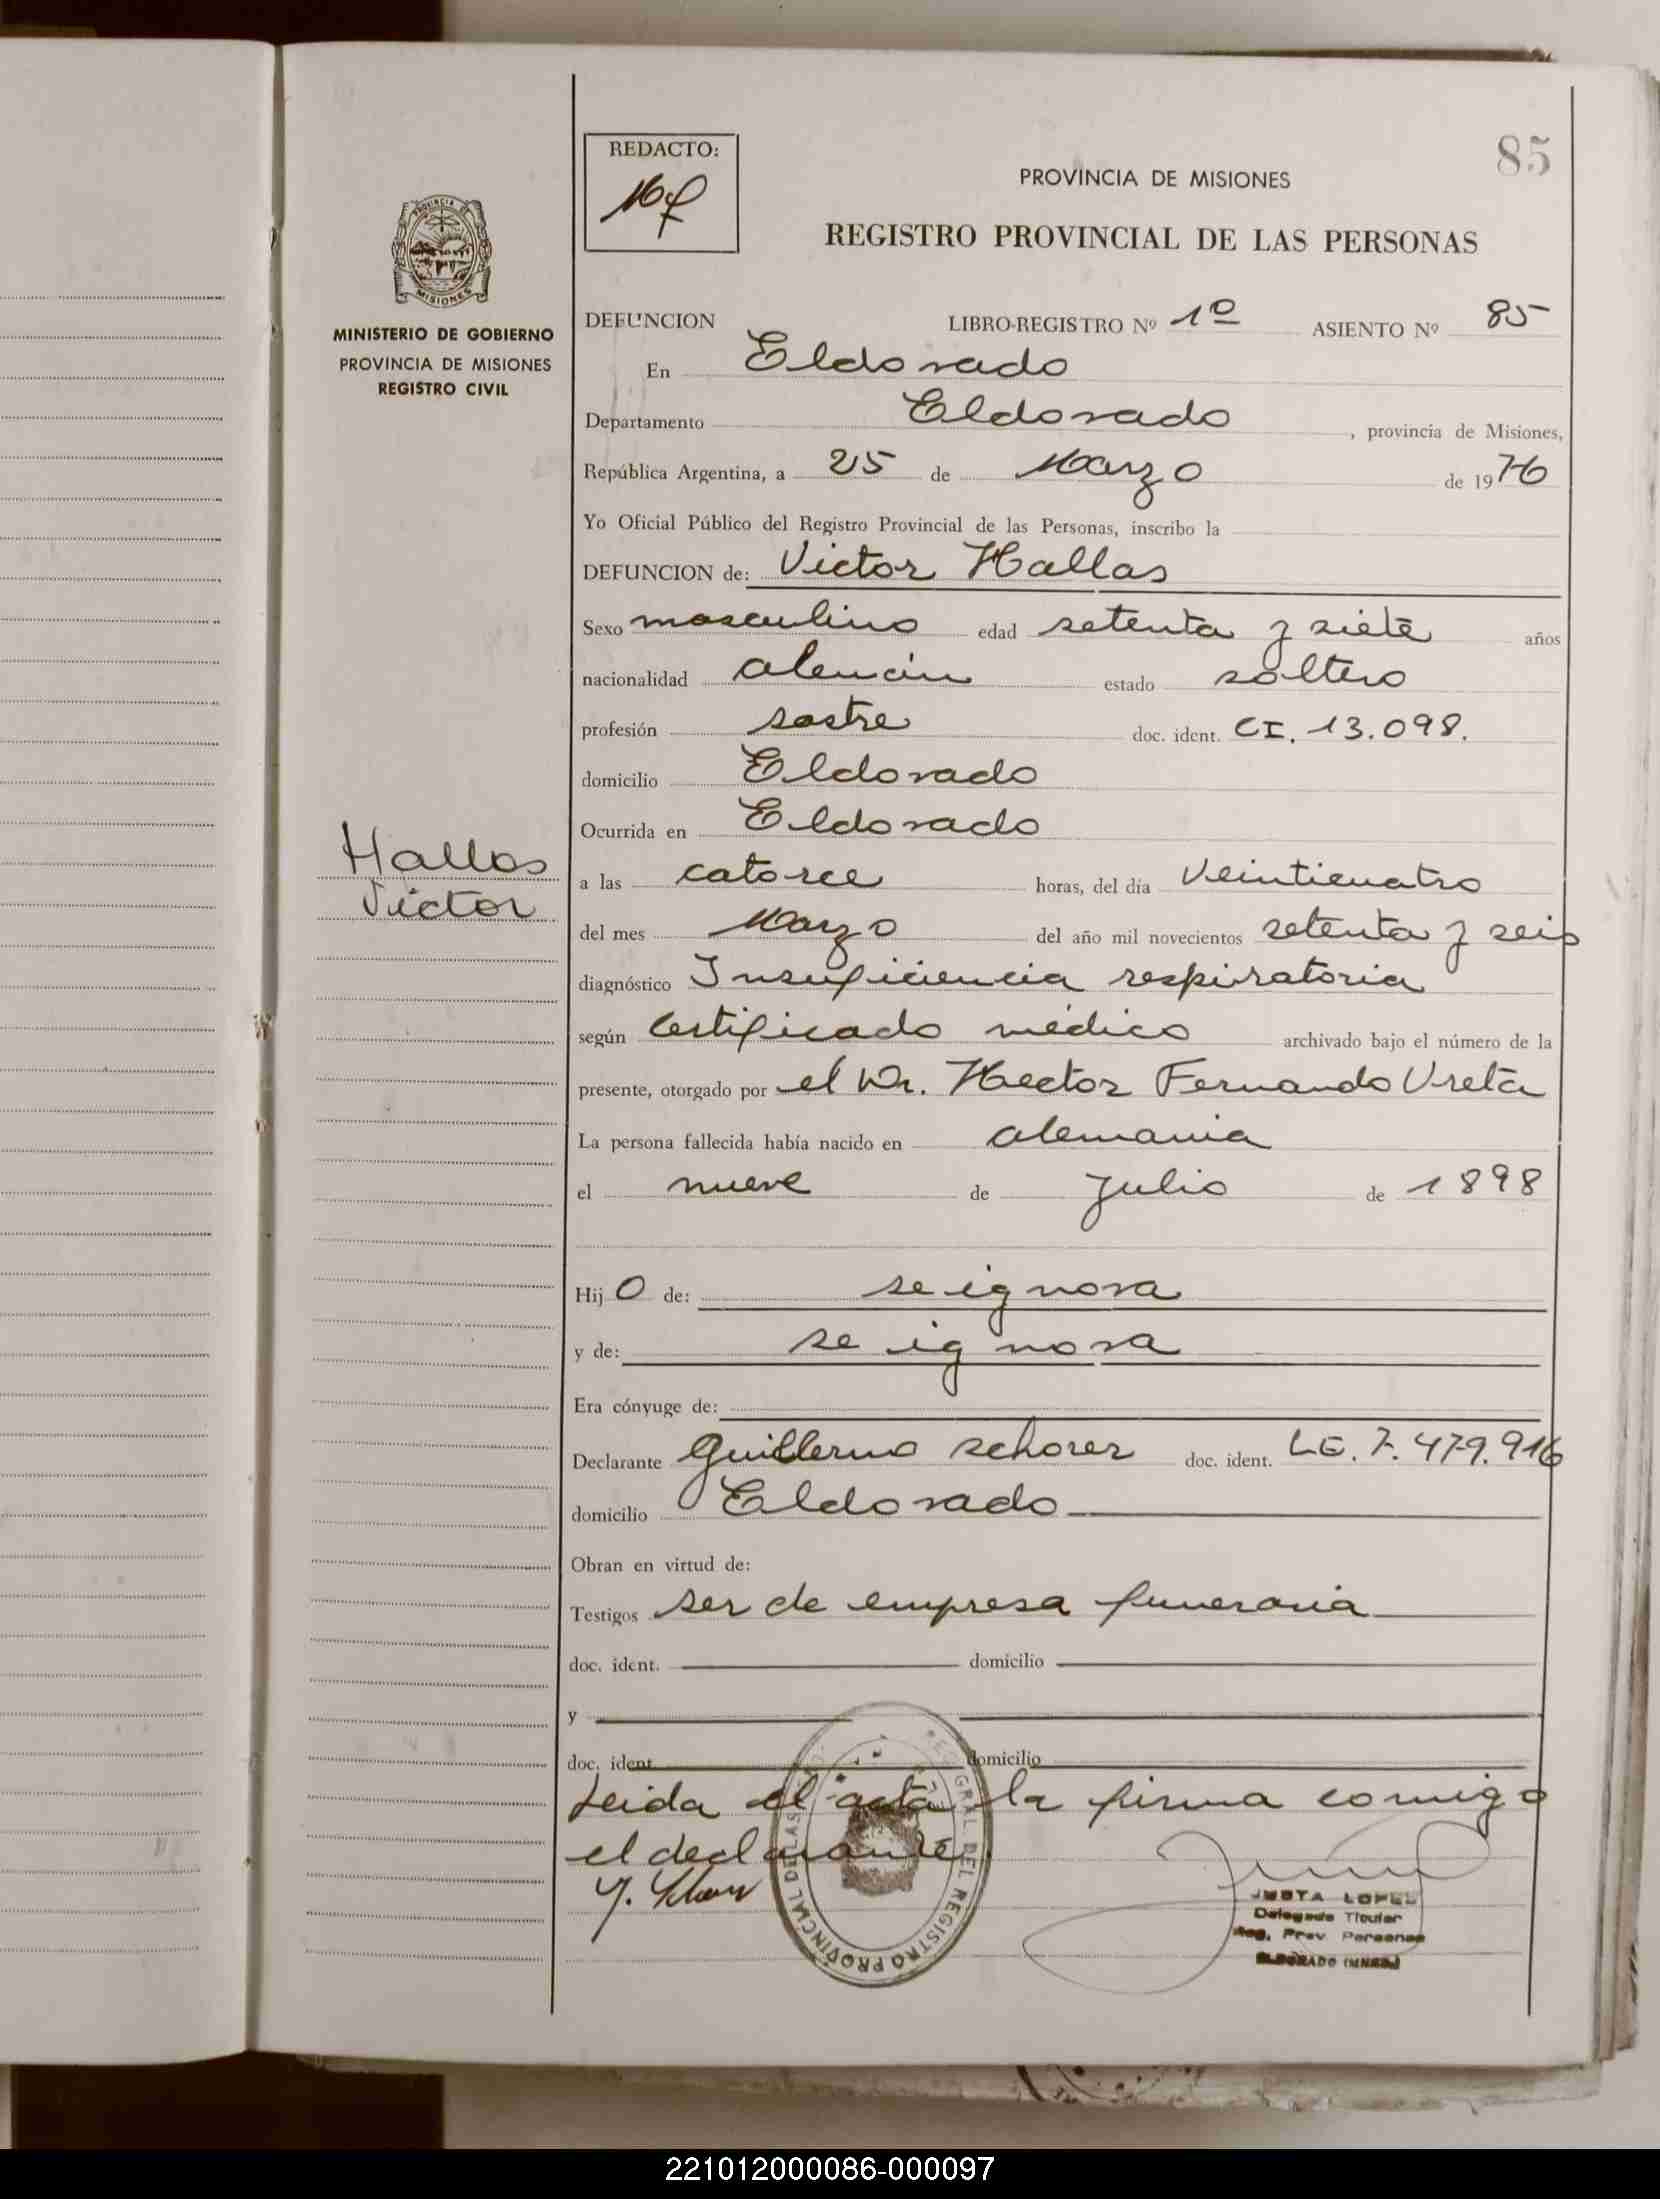 85
REDACTO:
PROVINCIA DE MISIONES
REGISTRO PROVINCIAL DE LAS PERSONAS
PROVINCIA DE
MISIONES
MINISTERIO DE GOBIERNO
PROVINCIA DE MISIONES
REGISTRO CIVIL
DEFUNCION LIBRO-REGISTRO Nº 1º ASIENTO Nº 85
En Eldorado
Departamento Eldorado, provincia de Misiones,
República Argentina, a 25 de Marzo de 1976
Yo Oficial Público del Registro Provincial de las Personas, inscribo la
DEFUNCION de: Victor Hallas
Sexo masculino edad setenta y siete años
nacionalidad alemán estado soltero
profesión sastre doc. ident. CI. 13.098.
domicilio Eldorado
Ocurrida en Eldorado
Hallas
Victor
a las catorce horas, del día veinticuatro
del mes Marzo del año mil novecientos setenta y seis
diagnóstico Insuficiencia respiratoria
según certificado médico archivado bajo el número de la
presente, otorgado por el Dr. Hector Fernando Ureta
La persona fallecida había nacido en alemania
el nueve de Julio de 1898
Hijo de: se ignora
y de: se ignora
Era cónyuge de:
Declarante Guillermo Schorer doc. ident. L.E. 7.479.916
domicilio Eldorado
Obran en virtud de:
Testigos ser de empresa funeraria
doc. ident. domicilio
y
doc. ident. domicilio
Leida el acta la firma comigo
el declarante.
REGISTRO PROVINCIAL DE LAS
GRAL DEL
JUSTA LOPEZ
Delegada Titular
Reg. Prov. Personas
ELDORADO (MNES.)
221012000086-000097